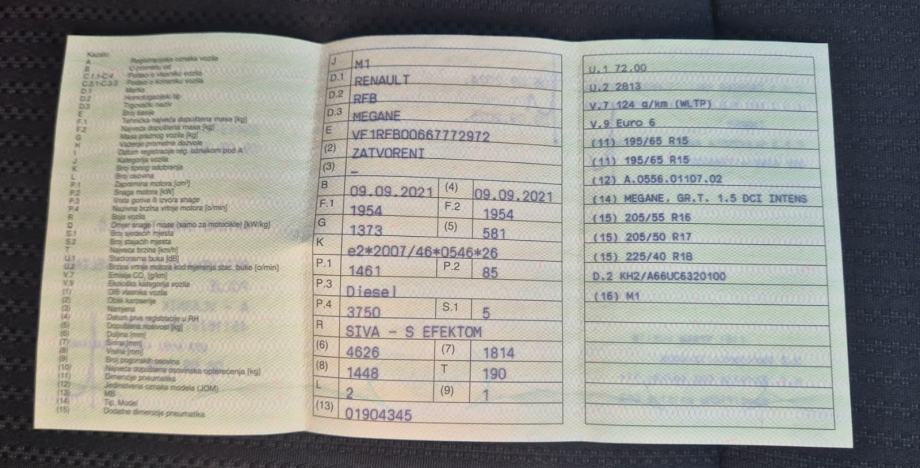 Kazalo:
A Registracijska oznaka vozila
B U prometu od
C.1.1-C.4 Podaci o vlasniku vozila
C.3.1-C.3.3 Podaci o korisniku vozila
D.1 Marka
D.2 Homologacijski tip
D.3 Trgovački naziv
E Broj šasije
F.1 Tehnička najveća dopuštena masa [kg]
F.2 Najveća dopuštena masa [kg]
G Masa praznog vozila [kg]
H Važenje prometne dozvole
I Datum registracije reg. oznakom pod A
J Kategorija vozila
K Broj tipnog odobrenja
L Broj osovina
P.1 Zapremina motora [cm³]
P.2 Snaga motora [kW]
P.3 Vrsta goriva ili izvora snage
P.4 Nazivna brzina vrtnje motora [o/min]
R Boja vozila
Q Omjer snage i mase (samo za motocikle) [kW/kg]
S.1 Broj sjedećih mjesta
S.2 Broj stajaćih mjesta
T Najveća brzina [km/h]
U.1 Stacionarna buka [dB]
U.2 Brzina vrtnje motora kod mjerenja stac. buke [o/min]
V.7 Emisija CO₂ [g/km]
V.9 Ekološka kategorija vozila
(1) OIB vlasnika vozila
(2) Oblik karoserije
(3) Namjena
(4) Datum prve registracije u RH
(5) Dopuštena nosivost [kg]
(6) Duljina [mm]
(7) Širina [mm]
(8) Visina [mm]
(9) Broj pogonskih osovina
(10) Najveće dopušteno osovinsko opterećenje [kg]
(11) Dimenzije pneumatika
(12) Jedinstvena oznaka modela (JOM)
(13) MB
(14) Tip, Model
(15) Dodatne dimenzije pneumatika
J M1
D.1 RENAULT
D.2 RFB
D.3 MEGANE
E VF1RFB00667772972
(2) ZATVORENI
(3) –
B 09.09.2021 (4) 09.09.2021
F.1 1954 F.2 1954
G 1373 (5) 581
K e2*2007/46*0546*26
P.1 1461 P.2 85
P.3 Diesel
P.4 3750 S.1 5
R SIVA - S EFEKTOM
(6) 4626 (7) 1814
(8) 1448 T 190
L 2 (9) 1
(13) 01904345
U.1 72.00
U.2 2813
V.7 124 g/km (WLTP)
V.9 Euro 6
(11) 195/65 R15
(11) 195/65 R15
(12) A.0556.01107.02
(14) MEGANE, GR.T. 1.5 DCI INTENS
(15) 205/55 R16
(15) 205/50 R17
(15) 225/40 R18
D.2 KH2/A66UC6320100
(16) M1